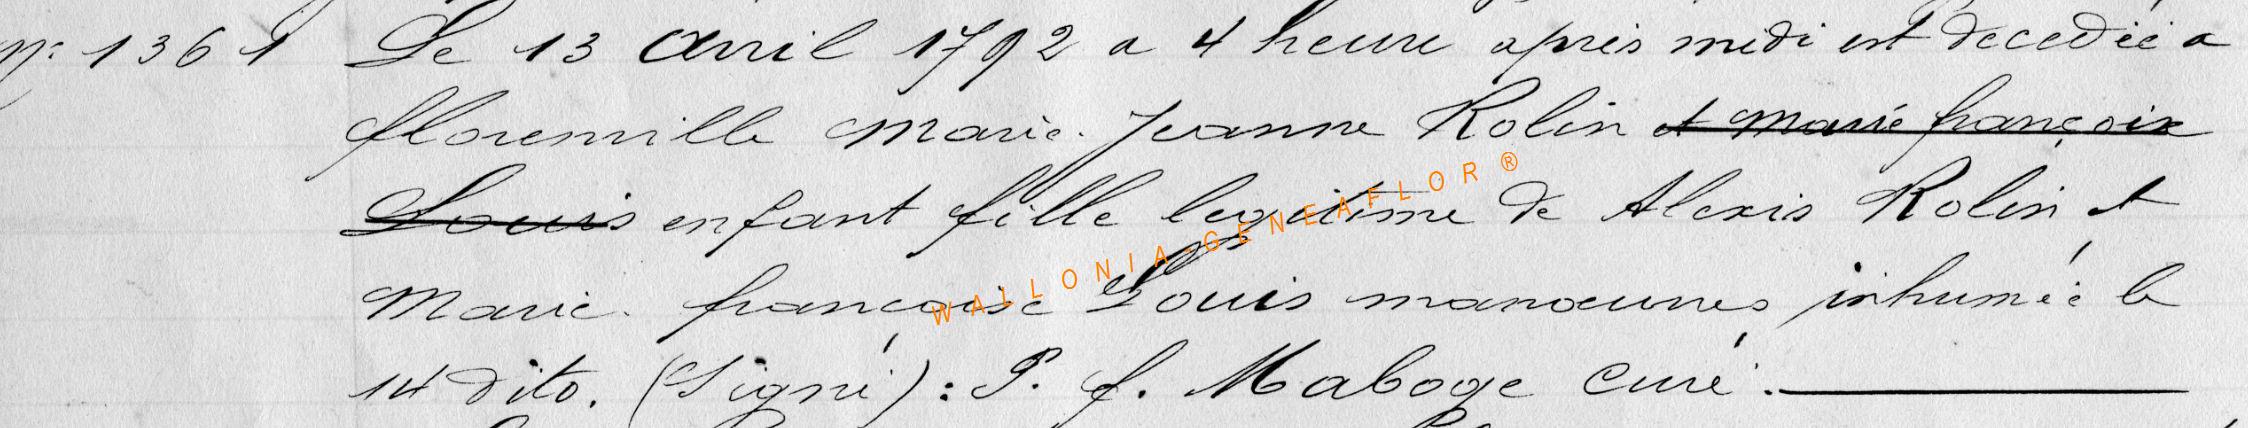 N: 1361 Le 13 avril 1792 a 4 heure après midi est decedée a
florenville Marie. Jeanne Rolin et Marie françoise
Louis enfant fille legitime de Alexis Rolin et
Marie. françoise Louis manœuvres inhumée le
14 dito. (Signé): P. f. Maboge Curé.
WALLONIA-GENEAFLOR®